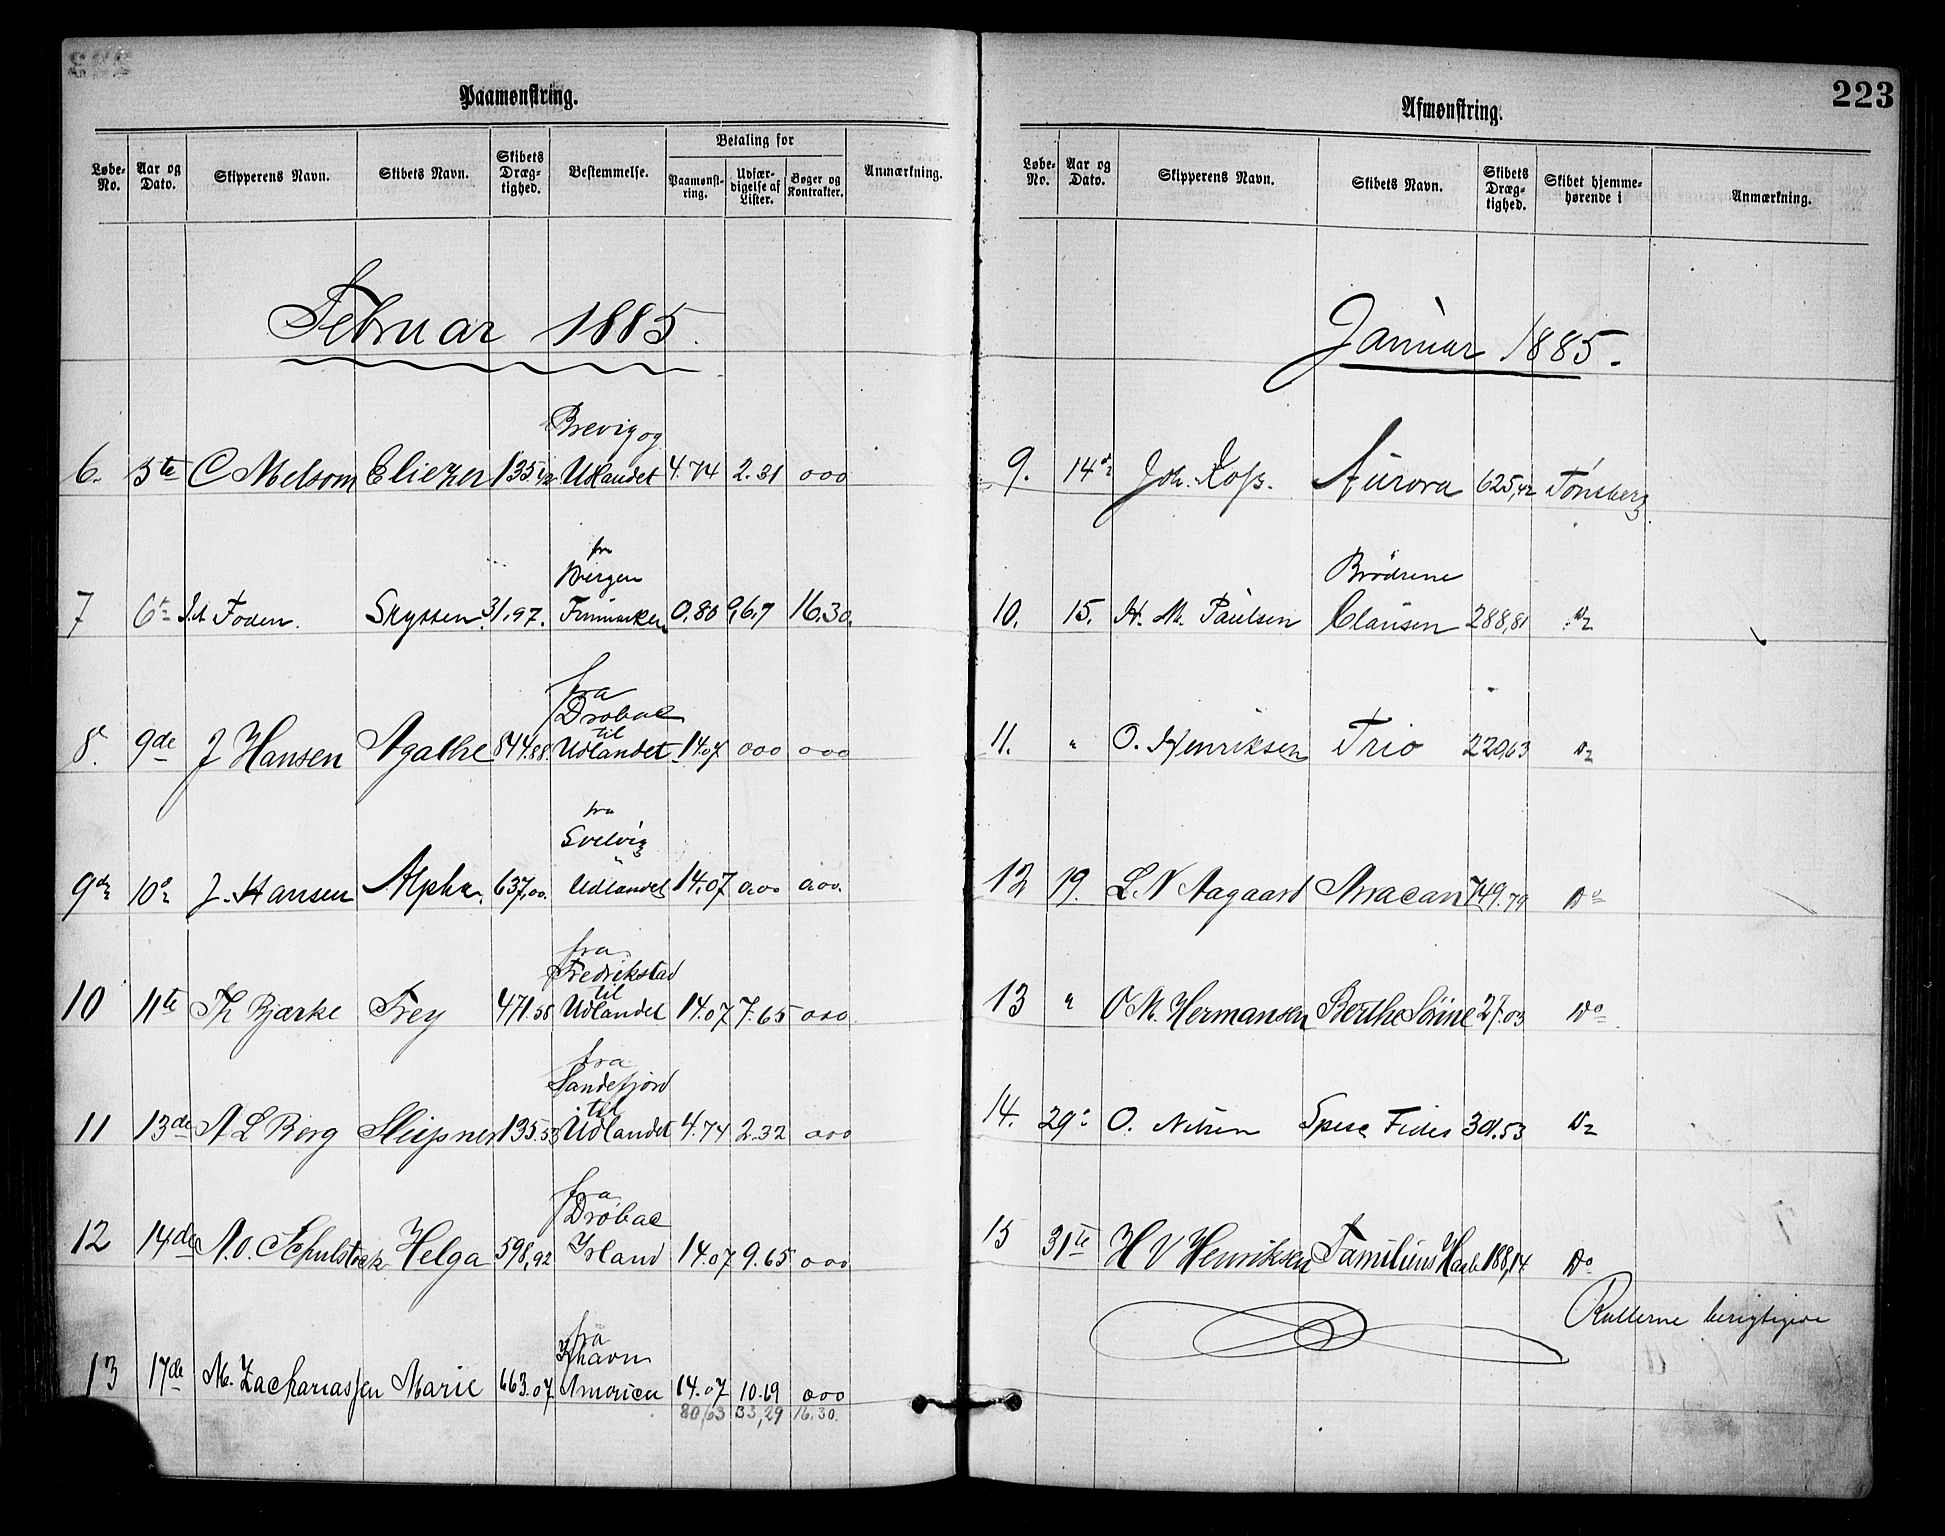 Paamønstring.
Løbe-No. Aar og Dato. Skipperens Navn. Skibets Navn. Skibets Dræg-tighed. Bestemmelse. Betaling for Paamønst-ring. Udfær-digelse af Lister. Bøger og Kontrakter. Anmærkning.
Februar 1885.
Brevig og
6. 5te C Melsom Eliezer 135,92 Udlandet 4.74 2.31 000
fra
Bergen
7 6te Foden. Skyssen. 31,97. Finmarken 0.80 16.30.
fra
Drøbac
til
8. 9de J Hansen Agathe 844.88. Udlandet. 14.07 000 000
fra
Svelvig
9de 10de J. Hansen Alpha. 637,00. Udlandet 14.07 0.00 0.00.
fra
Fredrikstad
til
10 11te Th Bjærke Frey 471.58 Udlandet 14.07 7.65 000
fra
Sandefjord
til
11 13de A L Berg Sleipner 135.53 Udlandet 4.74 2.32 000
fra
Drøbac
12 14de A.O. Schulstock Helga 598,92 Irland 14.07 9.65 000
fra
Khavn
13 17de M. Zachariassen Marie 663.07 Amerien 14.07 10.69 000
80,63 33,29 16.30.
223
Afmønstring.
Løbe-No. Aar og Dato. Skipperens Navn. Skibets Navn. Skibets Dræg-tighed. Skibet hjemme-hørende i Anmærkning.
Januar 1885.
9. 14de Joh. Foss. Aurora 625,42 Tønsberg.
Brödrene
10. 15. H. M. Paulsen Clausen 288,81 Do
11. " O. Henriksen Trio 220,63 Do
12 19. L. N Aagaard Arracan 749.79 Do
13 " O M. Hermansen Berthe Sørine 27.03 Do
14. 29de O. Nilsen Spes & Fides 301.53 Do
15 31te H V Henriksen Familiens Haab 188,14 Do
Rullerne berigtigede